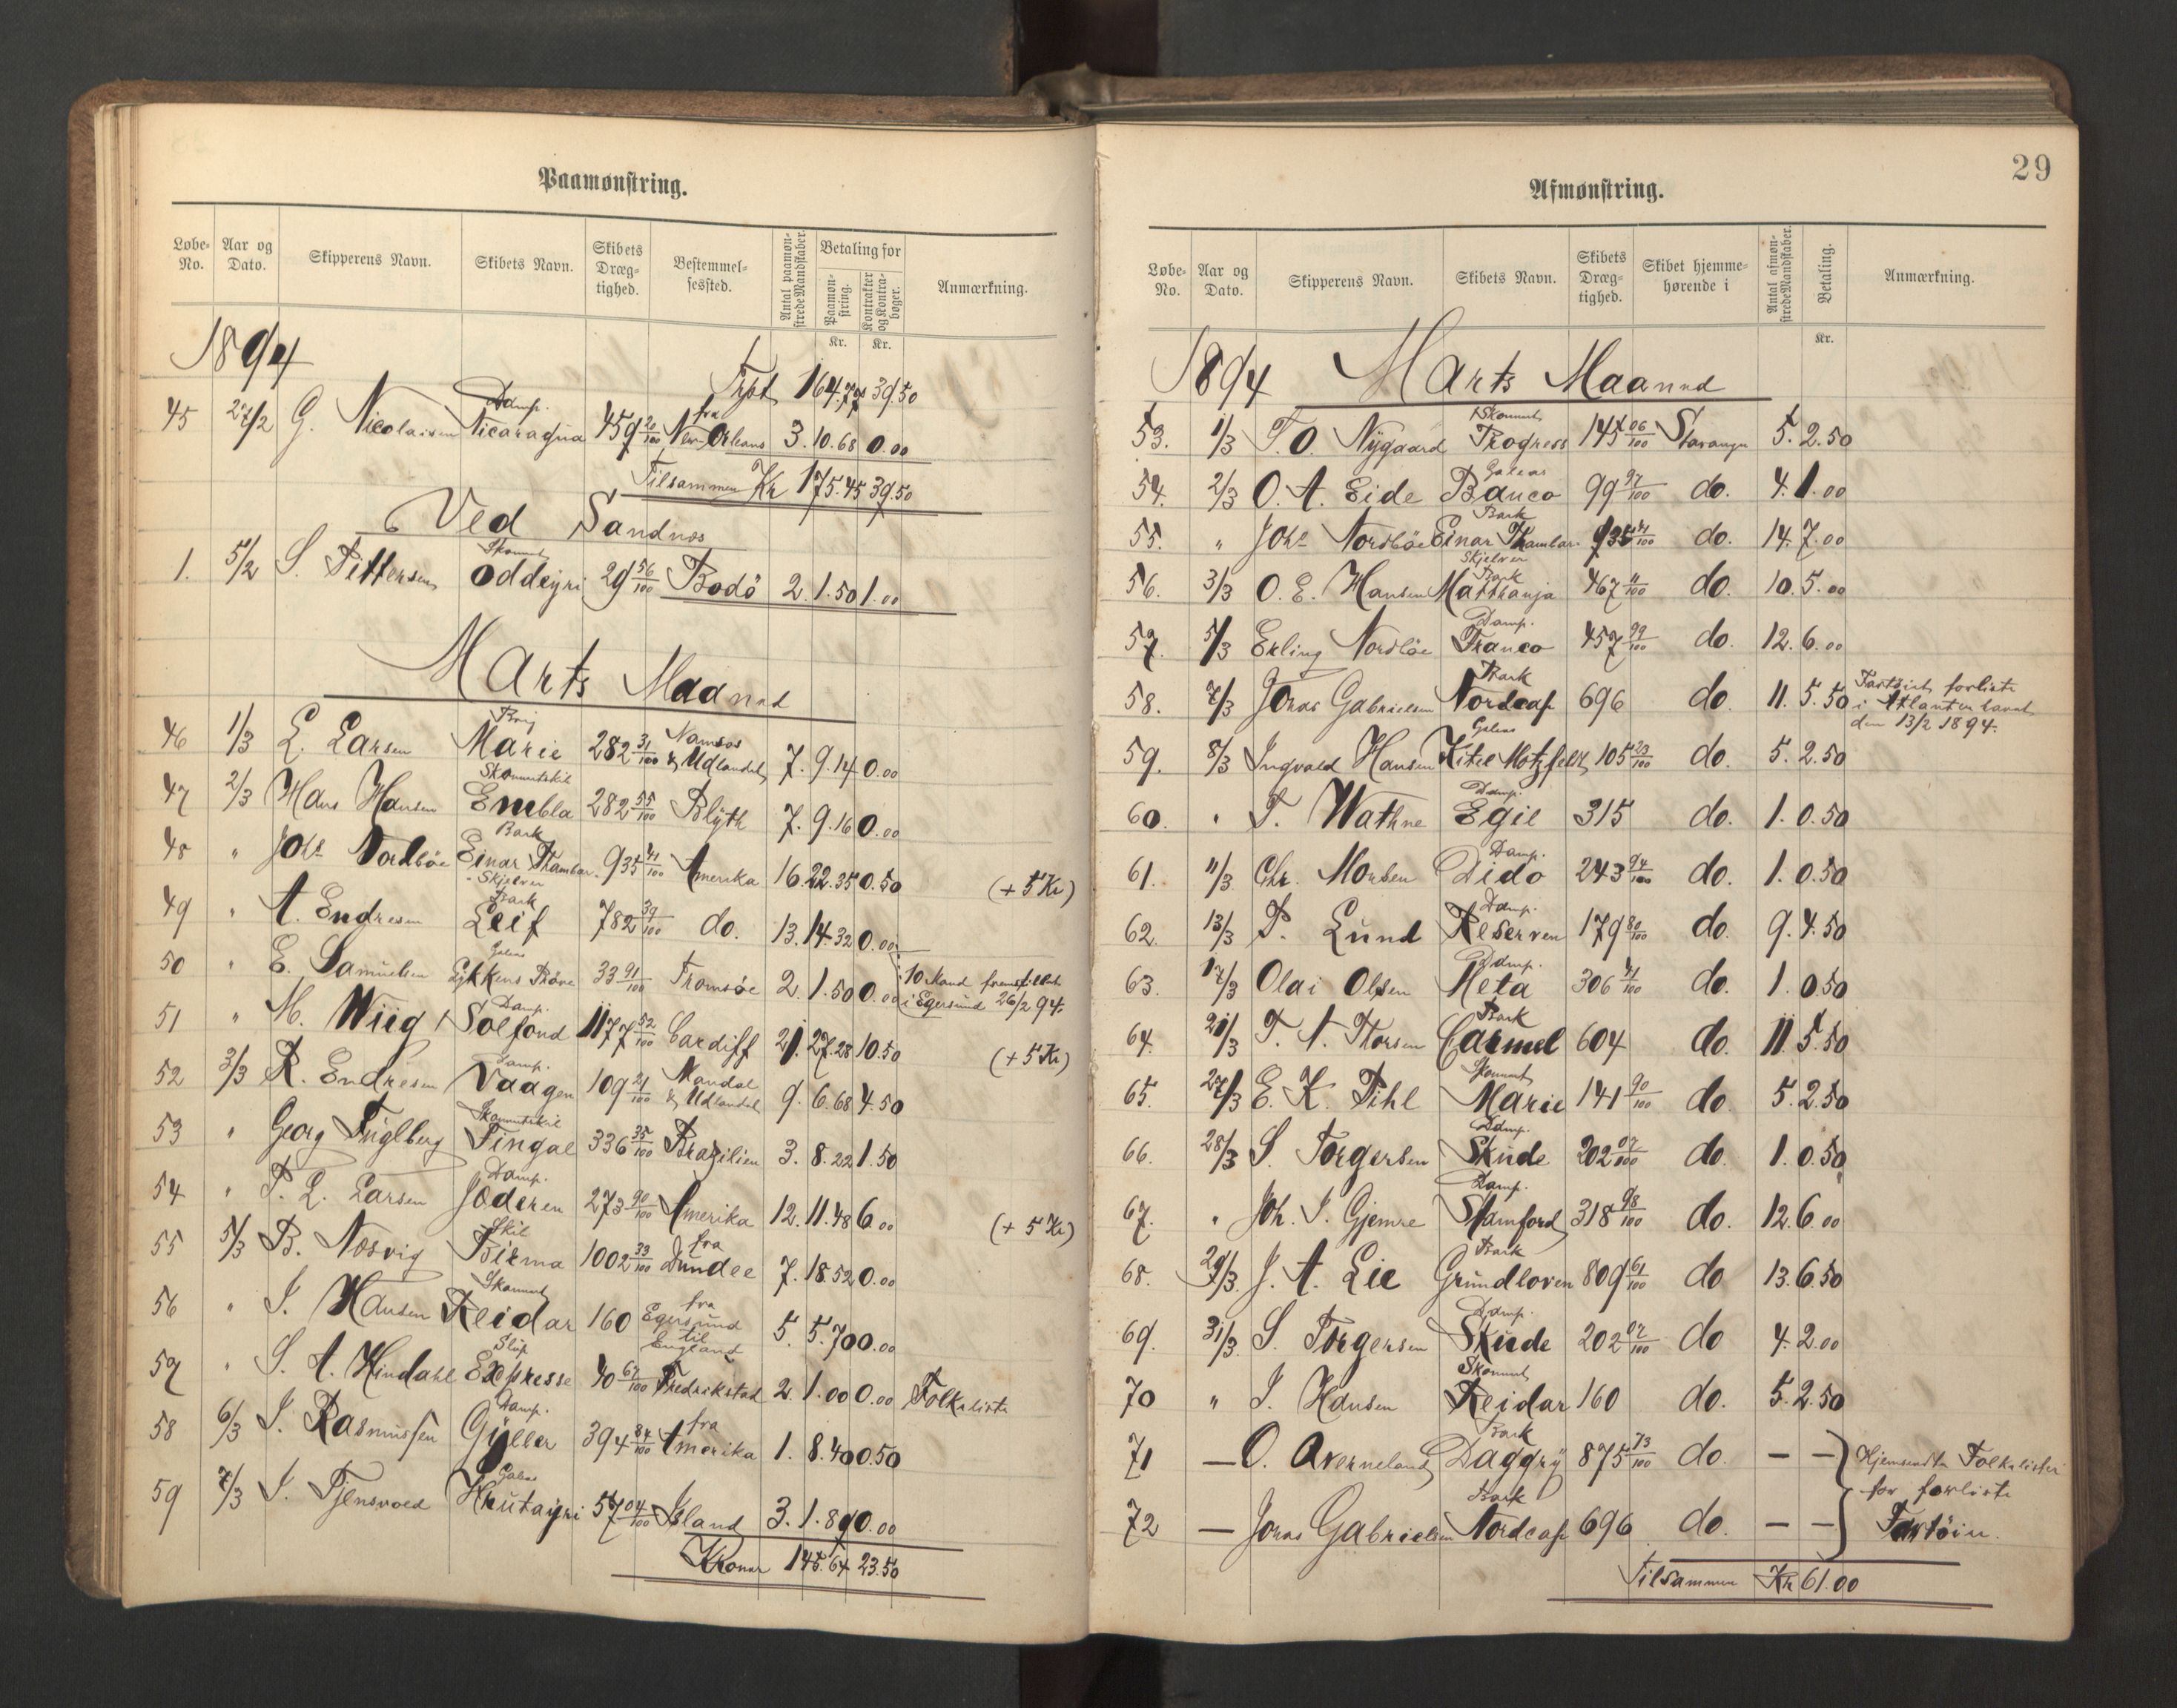 Paamønstring.
Løbe-No. Aar og Dato. Skipperens Navn. Skibets Navn. Skibets Dræg-tighed. Bestemmel-sessted. Antal paamøn-strede Mandskaber. Betaling for Paamøn-string. Kontrakter og Kontra-bøger. Anmærkning.
Kr. Kr.
1894
Trpt 164.77 39.50
45 27/2 G. Nicolaisen Damp. Nicaragua 459 20/100 fra New-Orleans 3. 10.68 0.00
Tilsammen Kr 175.45 39.50
Ved Sandnæs
1. 5/2 S. Pettersen Skonnert Oddeyri 29 56/100 Bodö 2. 1.50 1.00
Marts Maaned
46 1/3 L. Larsen Brig Marie 282 31/100 Namsos & Udlandet 7. 9.14 0.00
47 2/3 Hans Hansen Skonnertskib Embla 282 55/100 Blyth 7. 9.16 0.00
48 " Johs Nordböe Bark Einar Thambar-Skjelver 935 41/100 Amerika 16. 22.35 0.50 (+ 5 Kr)
49 " A. Endresen Bark Leif 782 39/100 do. 13. 14.32 0.00
50 " E. Samuelsen Galeas Lykkens Pröve 33 91/100 Tromsöe 2. 1.50 0.00 10 Mand fremstillet i Egersund 26/2 94.
51 " M. Wiig Damp. Solfond 1177 52/100 Cardiff 21. 27.28 10.50 (+ 5 Kr)
52 3/3 R. Endresen Damp. Vaagen 109 21/100 Mandal & Udlandet 9. 6.68 4.50
53 " Georg Fuglberg Skonnertskib Fingal 336 35/100 Brazilien 3. 8.22 1.50
54 " T. L. Larsen Damp. Jæderen 273 90/100 Amerika 12. 11.48 6.00 (+ 5 Kr)
55 5/3 B. Næsvig Skib Birma 1002 33/100 fra Dundee 7. 18.52 0.00
56 " I. Hansen Skonnert Reidar 160 fra Egersund til England 5. 5.70 0.00
57 " S. A. Hindahl Slup Expresse 40 67/100 Fredrikstad 2. 1.00 0.00 Folkeliste
58 6/3 S. Rasmussen Damp. Gyller 394 84/100 fra Amerika 1. 8.40 0.50
59 7/3 I. Tjensvold Galeas Hrutayri 57 04/100 Island 3. 1.89 0.00
Kroner 145.64 23.50
29
Afmønstring.
Løbe-No. Aar og Dato. Skipperens Navn. Skibets Navn. Skibets Dræg-tighed. Skibet hjemme-hørende i Antal afmøn-strede Mandskaber. Betaling. Anmærkning.
Kr.
1894 Marts Maaned
53. 1/3 T. O. Nygaard Skonnert Progress 145 06/100 Stavanger 5. 2.50
54. 2/3 O. A. Eide Galeas Banco 99 97/100 do. 4. 1.00
55. " Johs Nordböe Bark Einar Thambar-Skjelver 935 41/100 do. 14. 7.00
56. 3/3 O. E. Hansen Bark Matthanja 467 11/100 do. 10. 5.00
57. 5/3 Erling Nordböe Damp. Franco 457 99/100 do. 12. 6.00
58. 7/3 Jonas Gabrielsen Bark Nordcap 696 do. 11. 5.50 Fartöiet forliste i Atlanterhavet den 13/2 1894.
59. 8/3 Ingvald Hansen Galeas Kitel Motzfeldt 105 23/100 do. 5. 2.50
60. " T. Wathne Damp. Egil 315 do. 1. 0.50
61. 11/3 Chr. Monsen Damp. Dido 243 94/100 do. 1. 0.50
62. 13/3 P. Lund Damp. Reserven 179 80/100 do. 9. 4.50
63. 17/3 Olai Olsen Damp. Meta 306 41/100 do. 1. 0.50
64. 21/3 T. A. Thorsen Bark Carmel 604 do. 11. 5.50
65. 27/3 E. K. Pihl Skonnert Marie 141 90/100 do. 5. 2.50
66. 28/3 S. Torgersen Damp. Skude 202 07/100 do. 1. 0.50
67. " Joh. S. Gjemre Damp. Stamford 318 98/100 do. 12. 6.00
68. 29/3 J. A. Lie Bark Grundloven 809 61/100 do 13. 6.50
69. 31/3 S. Torgersen Damp. Skude 202 07/100 do 4. 2.00
70 " I. Hansen Skonnert Reidar 160 do. 5. 2.50
71 — O. Averneland Bark Daggry 875 73/100 do. — — Hjemsendte Folkelister
72 — Jonas Gabrielsen Bark Nordcap 696 do. — — for forliste Fartöier.
Tilsammen Kr 61.00